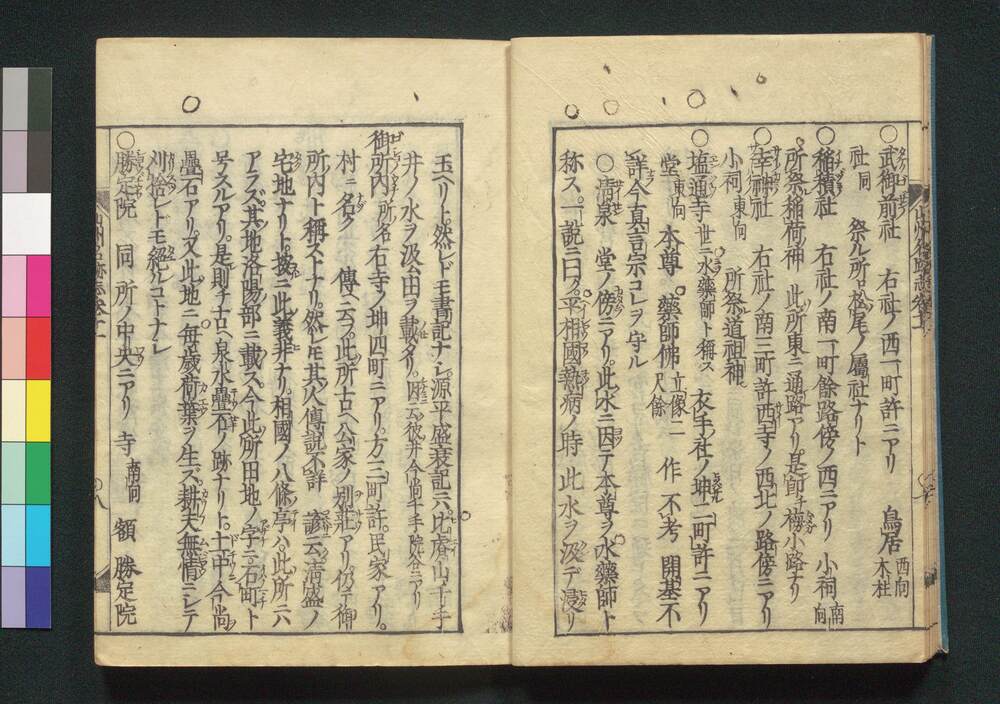 ○武御前社 右社ノ西一町許ニアリ 鳥居西向木柱
社同 祭ル所松尾ノ屬社ナリト
○稲積社 右社ノ南一町餘路傍ノ西ニアリ 小祠南向
所祭稲荷神 此所東ニ通路アリ是即チ梅小路ナリ
○幸神社 右社ノ南三町許西寺ノ西北ノ路傍ニアリ
小祠東向 所祭道祖神
○塩通寺世ニ水藥師ト稱ス 衣手社ノ坤二町許ニアリ
堂東向 本尊藥師佛立像二尺餘 作不考 開基不
詳今真言宗コレヲ守ル
○清泉 堂ノ傍ニアリ此水ニ因テ本尊ヲ水藥師ト
称ス一說ニ曰ク平相國熱病ノ時此水ヲ汲デ浸リ
玉ヘリト然レドモ書記ナシ源平盛衰記ニハ比睿山千手
井ノ水ヲ汲ム由ヲ載タリ因ニ云彼井今尚千手院谷ニアリ
御所内所名 右寺ノ坤四町ニアリ方三町許民家アリ
村ニ名ク 傳ヘ云フ此所古ヘ公家ノ別莊アリ仍テ御
所内ト稱ストナリ然レモ其人傳說不詳 諺云清盛ノ
宅地ナリト按ニ此義非ナリ相國ノ八條亭ハ此所ニハ
アラズ其地洛陽部ニ載ス今此所田地ノ字ニ石町ト
号スルアリ是則チ古ヘ泉水疊石ノ跡ナリト土中今尚
疊石アリ又此地ニ每歲荷葉ヲ生ズ耕夫無情ニシテ
刈捨レトモ絕ルコトナシ
○勝定院 同所ノ中央ニアリ 寺南向 額 勝定院